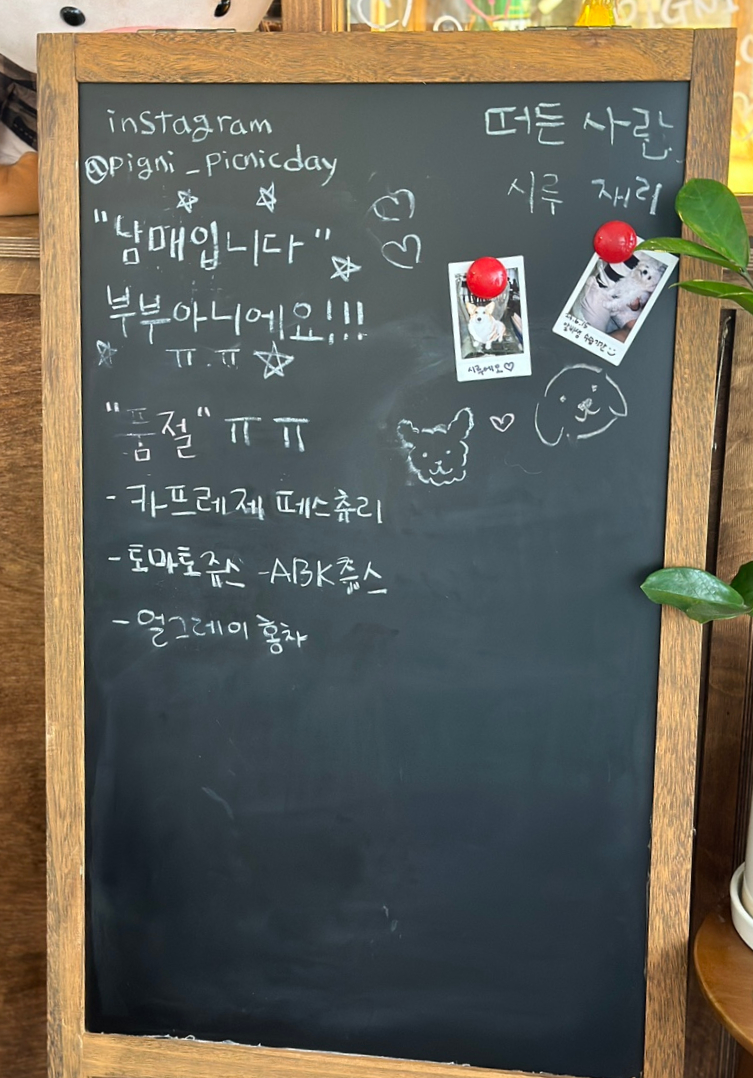 instagram
@pigni_picnicday
"남매입니다"
부부아니에요!!!
ㅠ.ㅠ
"품절" ㅠㅠ
- 카프레제 페스츄리
- 토마토쥬스 - ABK쥬스
- 얼그레이 홍차
떠든 사람
시루 재리
시루에요♡